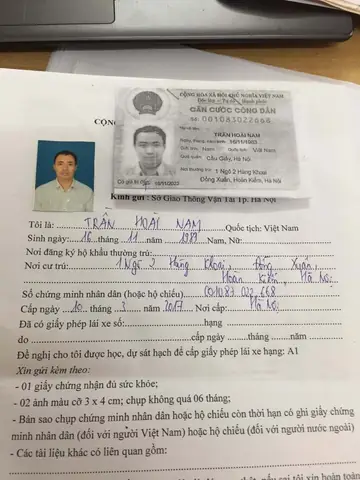 CỘNG HÒA XÃ HỘI CHỦ NGHĨA VIỆT NAM
Độc lập - Tự do - Hạnh phúc
CĂN CƯỚC CÔNG DÂN
Số: 001083022668
TRẦN HOÀI NAM
Việt Nam
Cầu Giấy, Hà Nội
1 Ngõ 2 Hàng Khoai
Đồng Xuân, Hoàn Kiếm, Hà Nội
CỘN
Kính gửi : Sở Giao Thông Vận Tải Tp. Hà Nội
Tôi là: TRẦN HOÀI NAM Quốc tịch: Việt Nam
Sinh ngày: 16 tháng 11 năm Nam, Nữ:
Nơi đăng ký hộ khẩu thường trú:
Nơi cư trú: 1 Ngõ 2 Hàng Khoai, Đồng Xuân,
Hoàn Kiếm, Hà Nội
Số chứng minh nhân dân (hoặc hộ chiếu) 001083 022 668
Cấp ngày 10 tháng 3 năm 2017 Nơi cấp: Hà Nội
Đã có giấy phép lái xe số: hạng
do cấp ngày tháng năm
Đề nghị cho tôi được học, dự sát hạch để cấp giấy phép lái xe hạng: A1
Xin gửi kèm theo:
- 01 giấy chứng nhận đủ sức khỏe;
- 02 ảnh màu cỡ 3 x 4 cm; chụp không quá 06 tháng;
- Bản sao chụp chứng minh nhân dân hoặc hộ chiếu còn thời hạn có ghi giấy chứng
minh nhân dân (đối với người Việt Nam) hoặc hộ chiếu (đối với người nước ngoài)
- Các tài liệu khác có liên quan gồm: